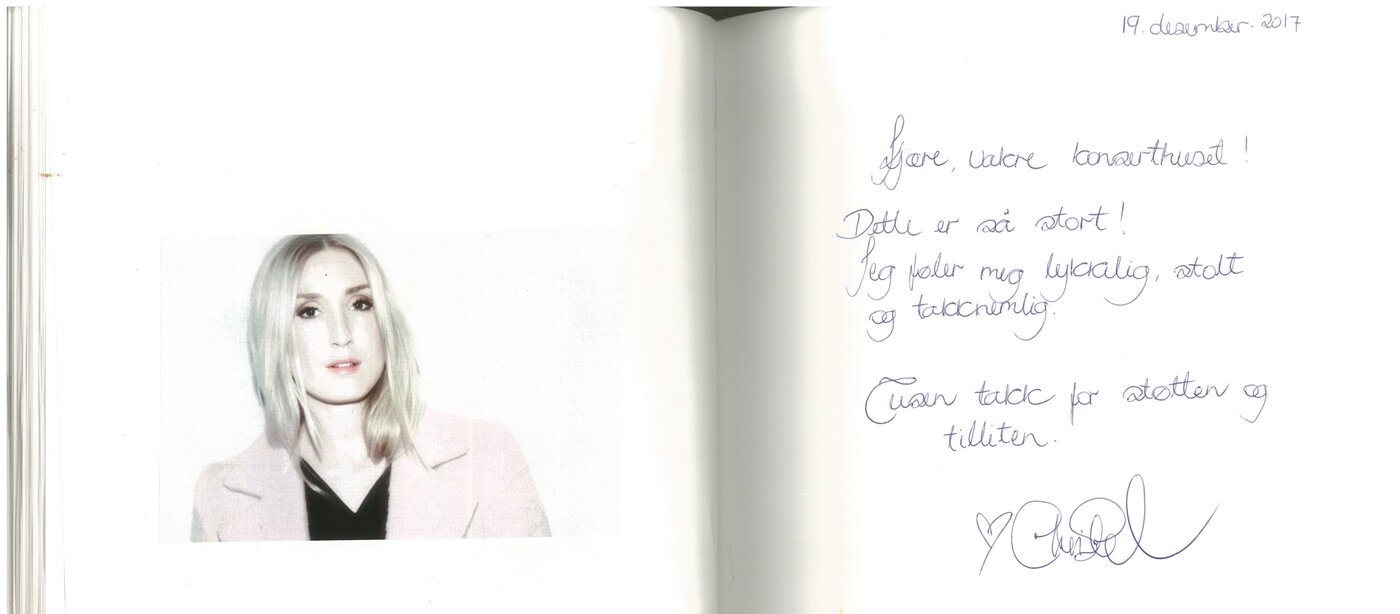 19. desember. 2017
Kjære, vakre konserthuset!
Dette er så stort!
Jeg føler meg lykkelig, stolt
og takknemlig.
Tusen takk for støtten og
tilliten.
Christel